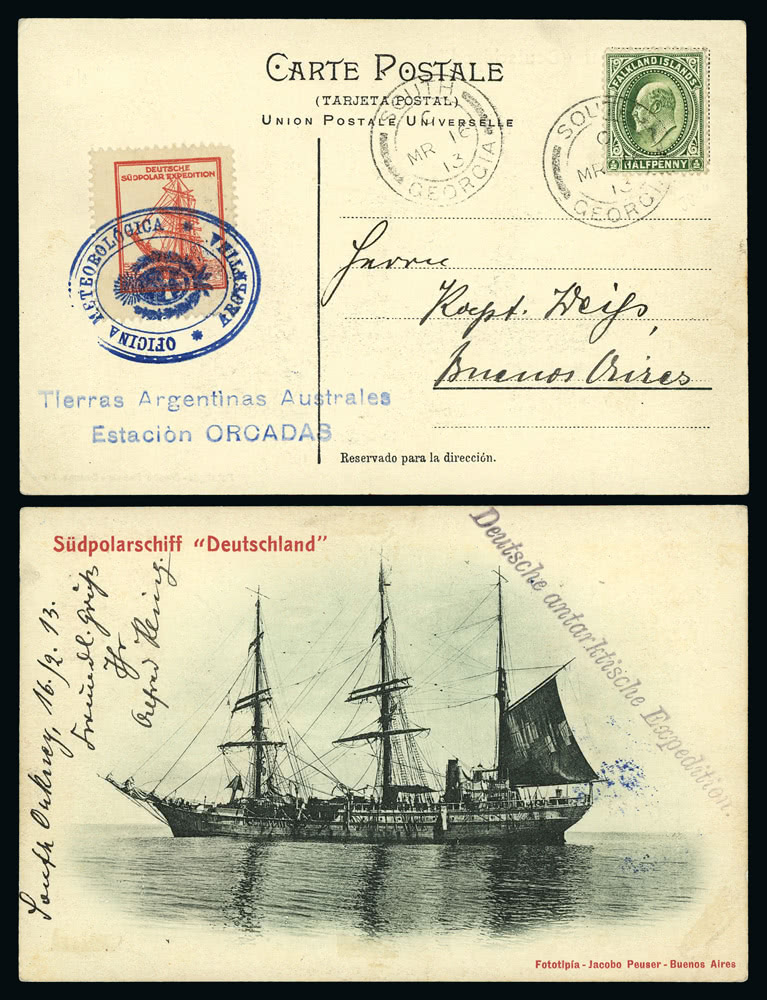 CARTE POSTALE
(TARJETA POSTAL)
UNION POSTALE UNIVERSELLE
SOUTH
C
MR 16
13
GEORGIA
FALKLAND ISLANDS
HALFPENNY
SOU
MR
13
GEORGIA
DEUTSCHE
SÜDPOLAR EXPEDITION
OFICINA METEOROLÓGICA * ARGENTINA *
Tierras Argentinas Australes
Estación ORCADAS
Herrn
Kapt. Weiss,
Buenos Aires
Reservado para la dirección.
Südpolarschiff "Deutschland"
Deutsche antarktische Expedition.
South Orkney, 16/2. 13.
Freundl. Gruß
Ihr
Alfred Kling.
Fototipía - Jacobo Peuser - Buenos Aires